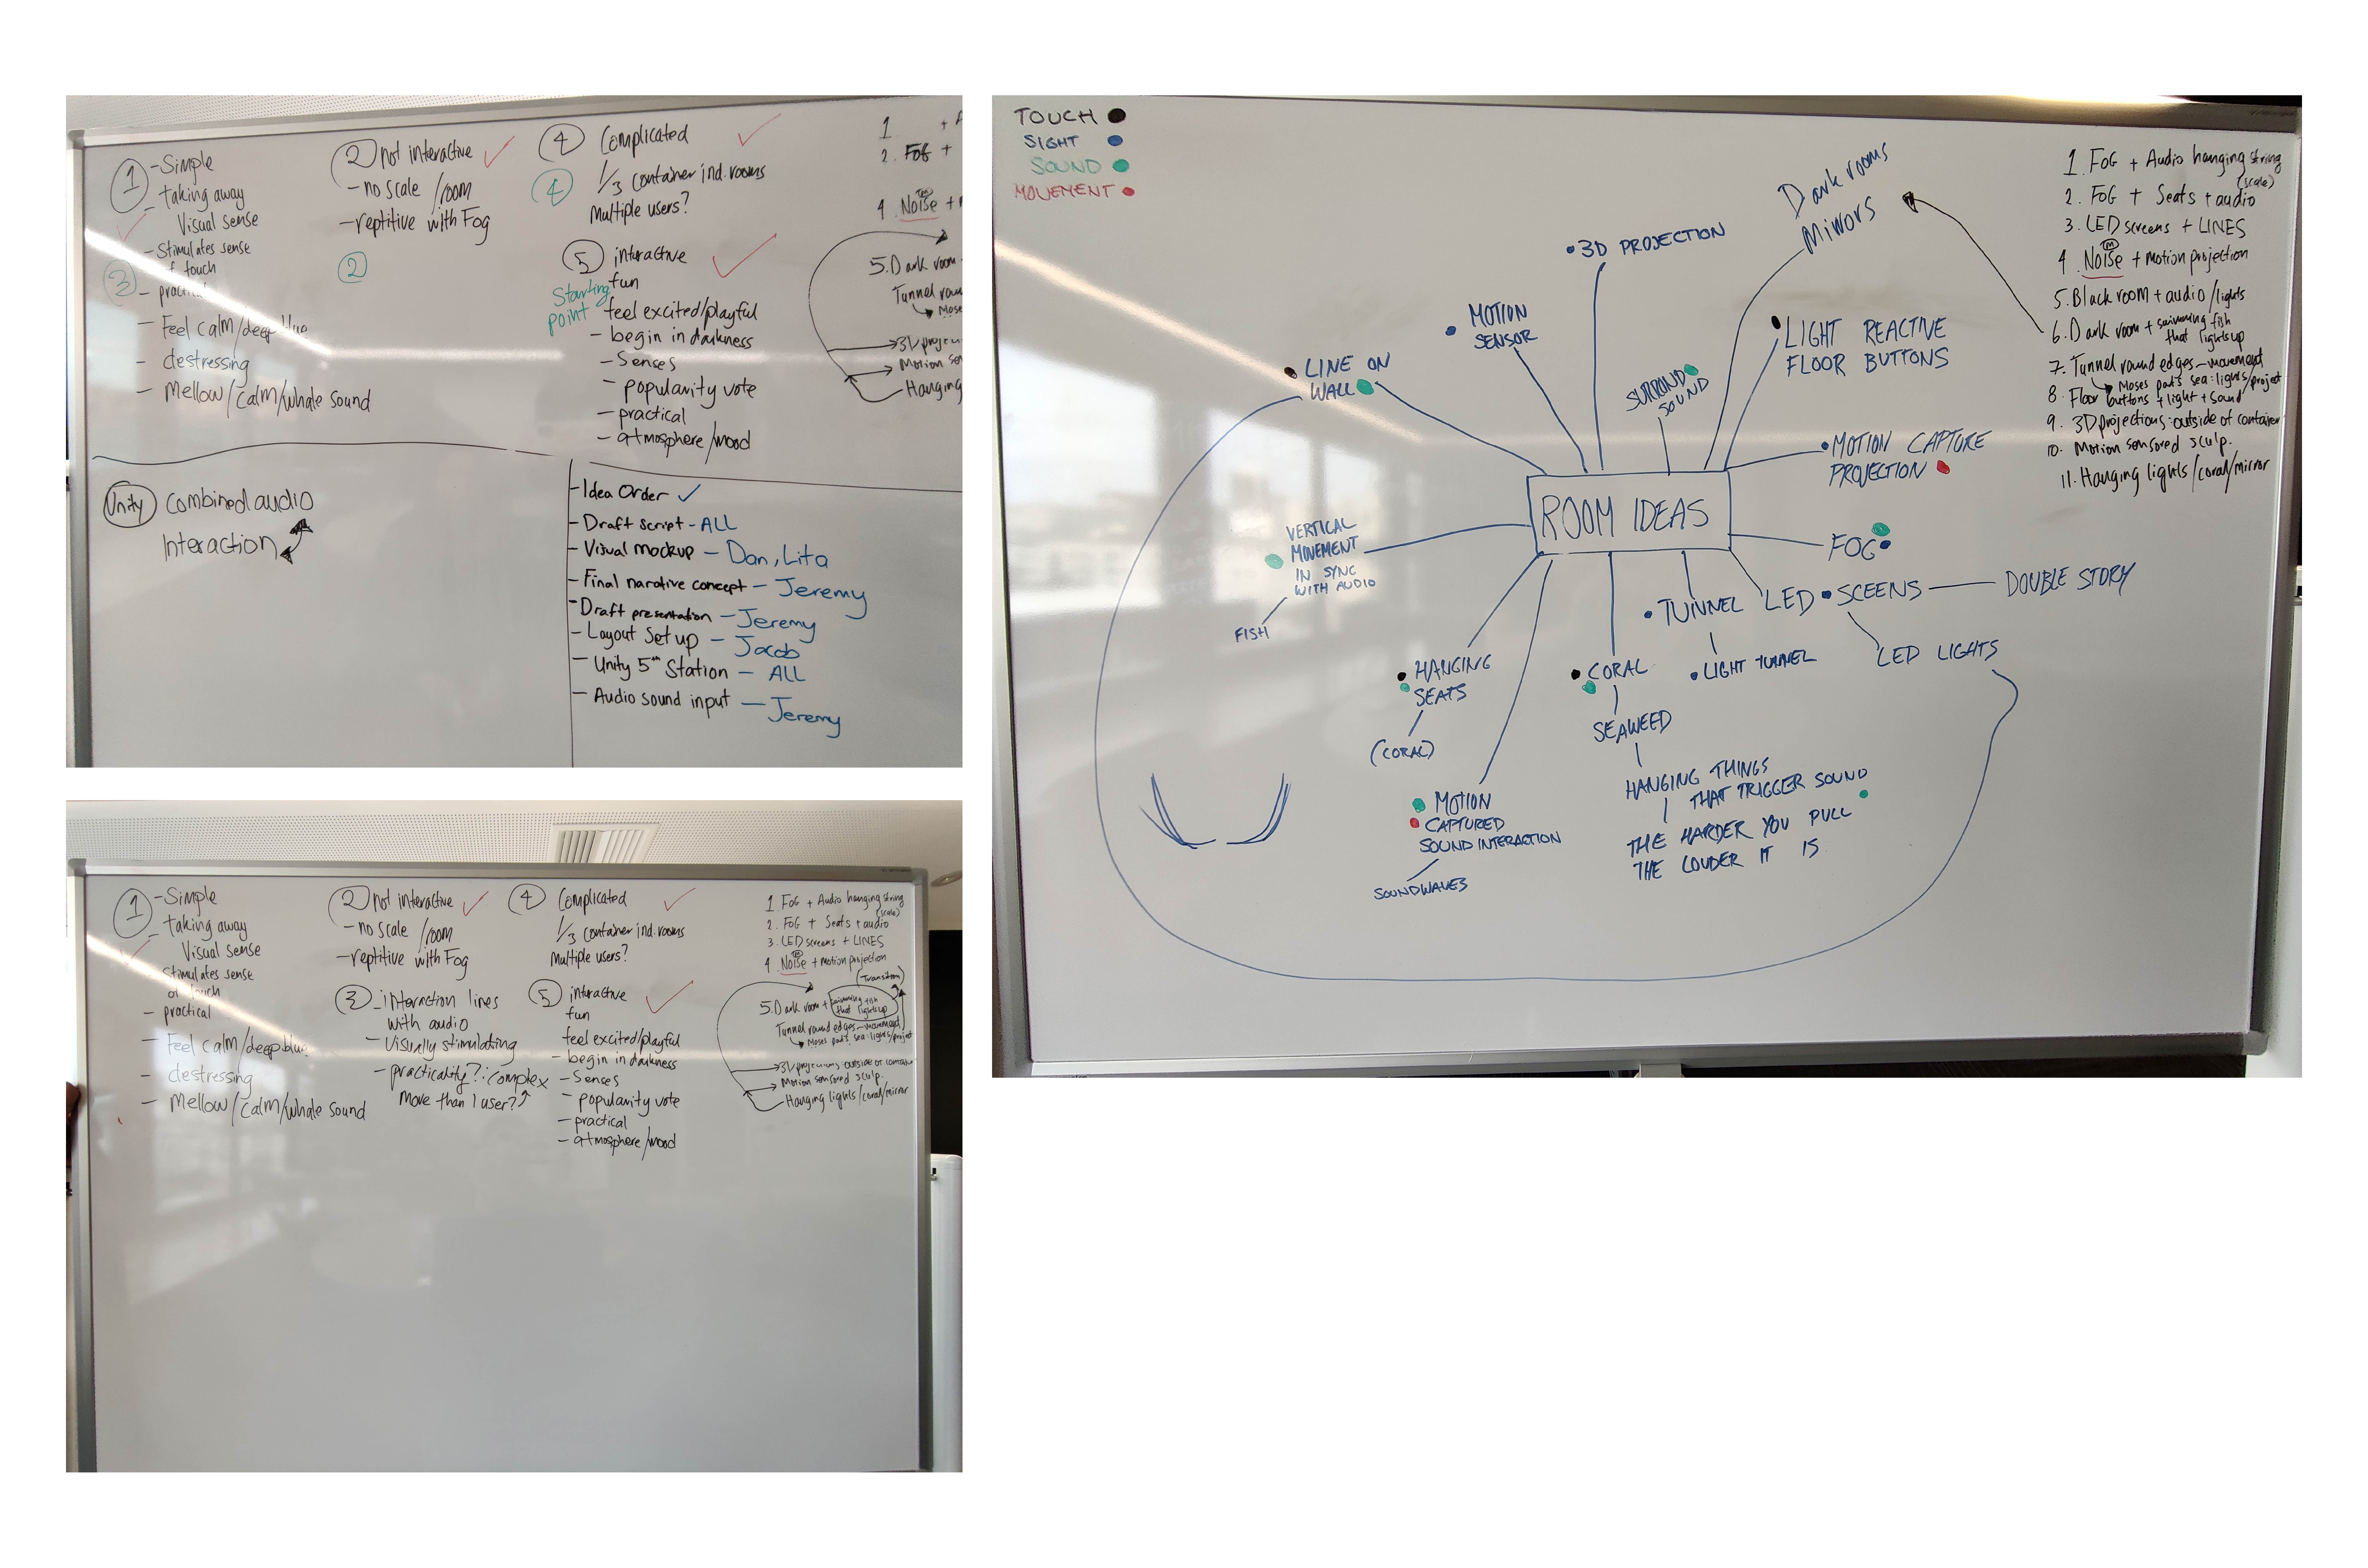 1 - Simple
- taking away
Visual sense
- Stimulates sense
of touch
3
- practical
- Feel calm/deep blue
- destressing
- Mellow/calm/whale sound
2 not interactive
- no scale /room
- reptitive with Fog
2
4 Complicated
4
1/3 container ind. rooms
Multiple users?
5 interactive
fun
Starting
point
feel excited/playful
- begin in darkness
- Senses
- popularity vote
- practical
- atmosphere/mood
1 +
2. FOG +
4. NOISE +
5. Dark room
Tunnel
Moses
Hanging
Unity Combined audio
Interaction
- Idea Order ✓
- Draft script - ALL
- Visual mockup - Dan, Lita
- Final narative concept - Jeremy
- Draft presentation - Jeremy
- Layout Set up - Jacob
- Unity 5th Station - ALL
- Audio sound input - Jeremy
TOUCH
SIGHT
SOUND
MOVEMENT
Dark rooms
Mirrors
3D PROJECTION
MOTION
SENSOR
LIGHT REACTIVE
FLOOR BUTTONS
LINE ON
WALL
SURROND
SOUND
MOTION CAPTURE
PROJECTION
ROOM IDEAS
VERTICAL
MOVEMENT
IN SYNC
WITH AUDIO
FISH
FOG
TUNNEL
LED SCEENS
DOUBLE STORY
LIGHT TUNNEL
LED LIGHTS
HANGING
SEATS
(CORAL)
CORAL
SEAWEED
HANGING THINGS
THAT TRIGGER SOUND
THE HARDER YOU PULL
THE LOUDER IT IS
MOTION
CAPTURED
SOUND INTERACTION
SOUNDWAVES
1. FOG + Audio hanging string
(scale)
2. FOG + Seats + audio
3. LED screens + LINES
TM
4. NOISE + motion projection
5. Black room + audio/lights
6. Dark room + swimming fish
that lights up
7. Tunnel round edges - movement
Moses parts sea: lights/project
8. Floor buttons + light + sound
9. 3D projections: outside of container
10. Motion sensored sculp.
11. Hanging lights/coral/mirror
1 - Simple
- taking away
Visual sense
Stimulates sense
of touch
- practical
- Feel calm/deep blue
- destressing
- Mellow/calm/whale sound
2 not interactive
- no scale /room
- reptitive with Fog
3 - interaction lines
with audio
- Visually stimulating
- practicality?: complex
More than 1 user?
4 Complicated
1/3 container ind. rooms
Multiple users?
5 interactive
fun
feel excited/playful
- begin in darkness
- Senses
- popularity vote
- practical
- atmosphere/mood
1 FOG + Audio hanging string
(scale)
2. FOG + Seats + audio
3. LED screens + LINES
4 NOISE + motion projection
(Transition)
5. Dark room + swimming fish
that lights up
Tunnel round edges - movement
Moses parts sea: lights/project
3D projections: outside of container
Motion sensored sculp.
Hanging lights/coral/mirror